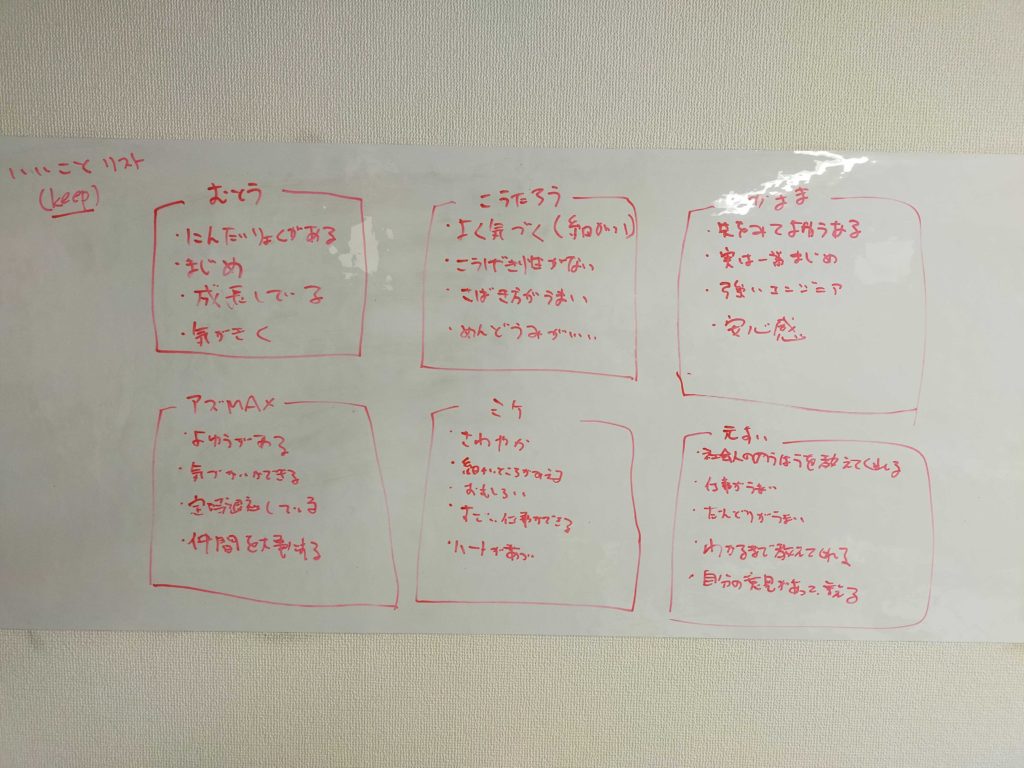 いいこと リスト
(keep)
むとう
・にんたいりょくがある
・まじめ
・成長している
・気がきく
こうたろう
・よく気づく(細かい)
・こうげき性がない
・さばき方がうまい
・めんどうみがいい
・実は一番まじめ
・強いエンジニア
・安心感
アズMAX
・よゆうがある
・気づかいができる
・定時退社している
・仲間を大事にする
ミケ
・さわやか
・細かいところがみえる
・おもしろい
・すごい仕事ができる
・ハートがあつい
・社会人のさほうを教えてくれる
・仕事がうまい
・だんどりがうまい
・わかるまで教えてくれる
・自分の意見があって、言える